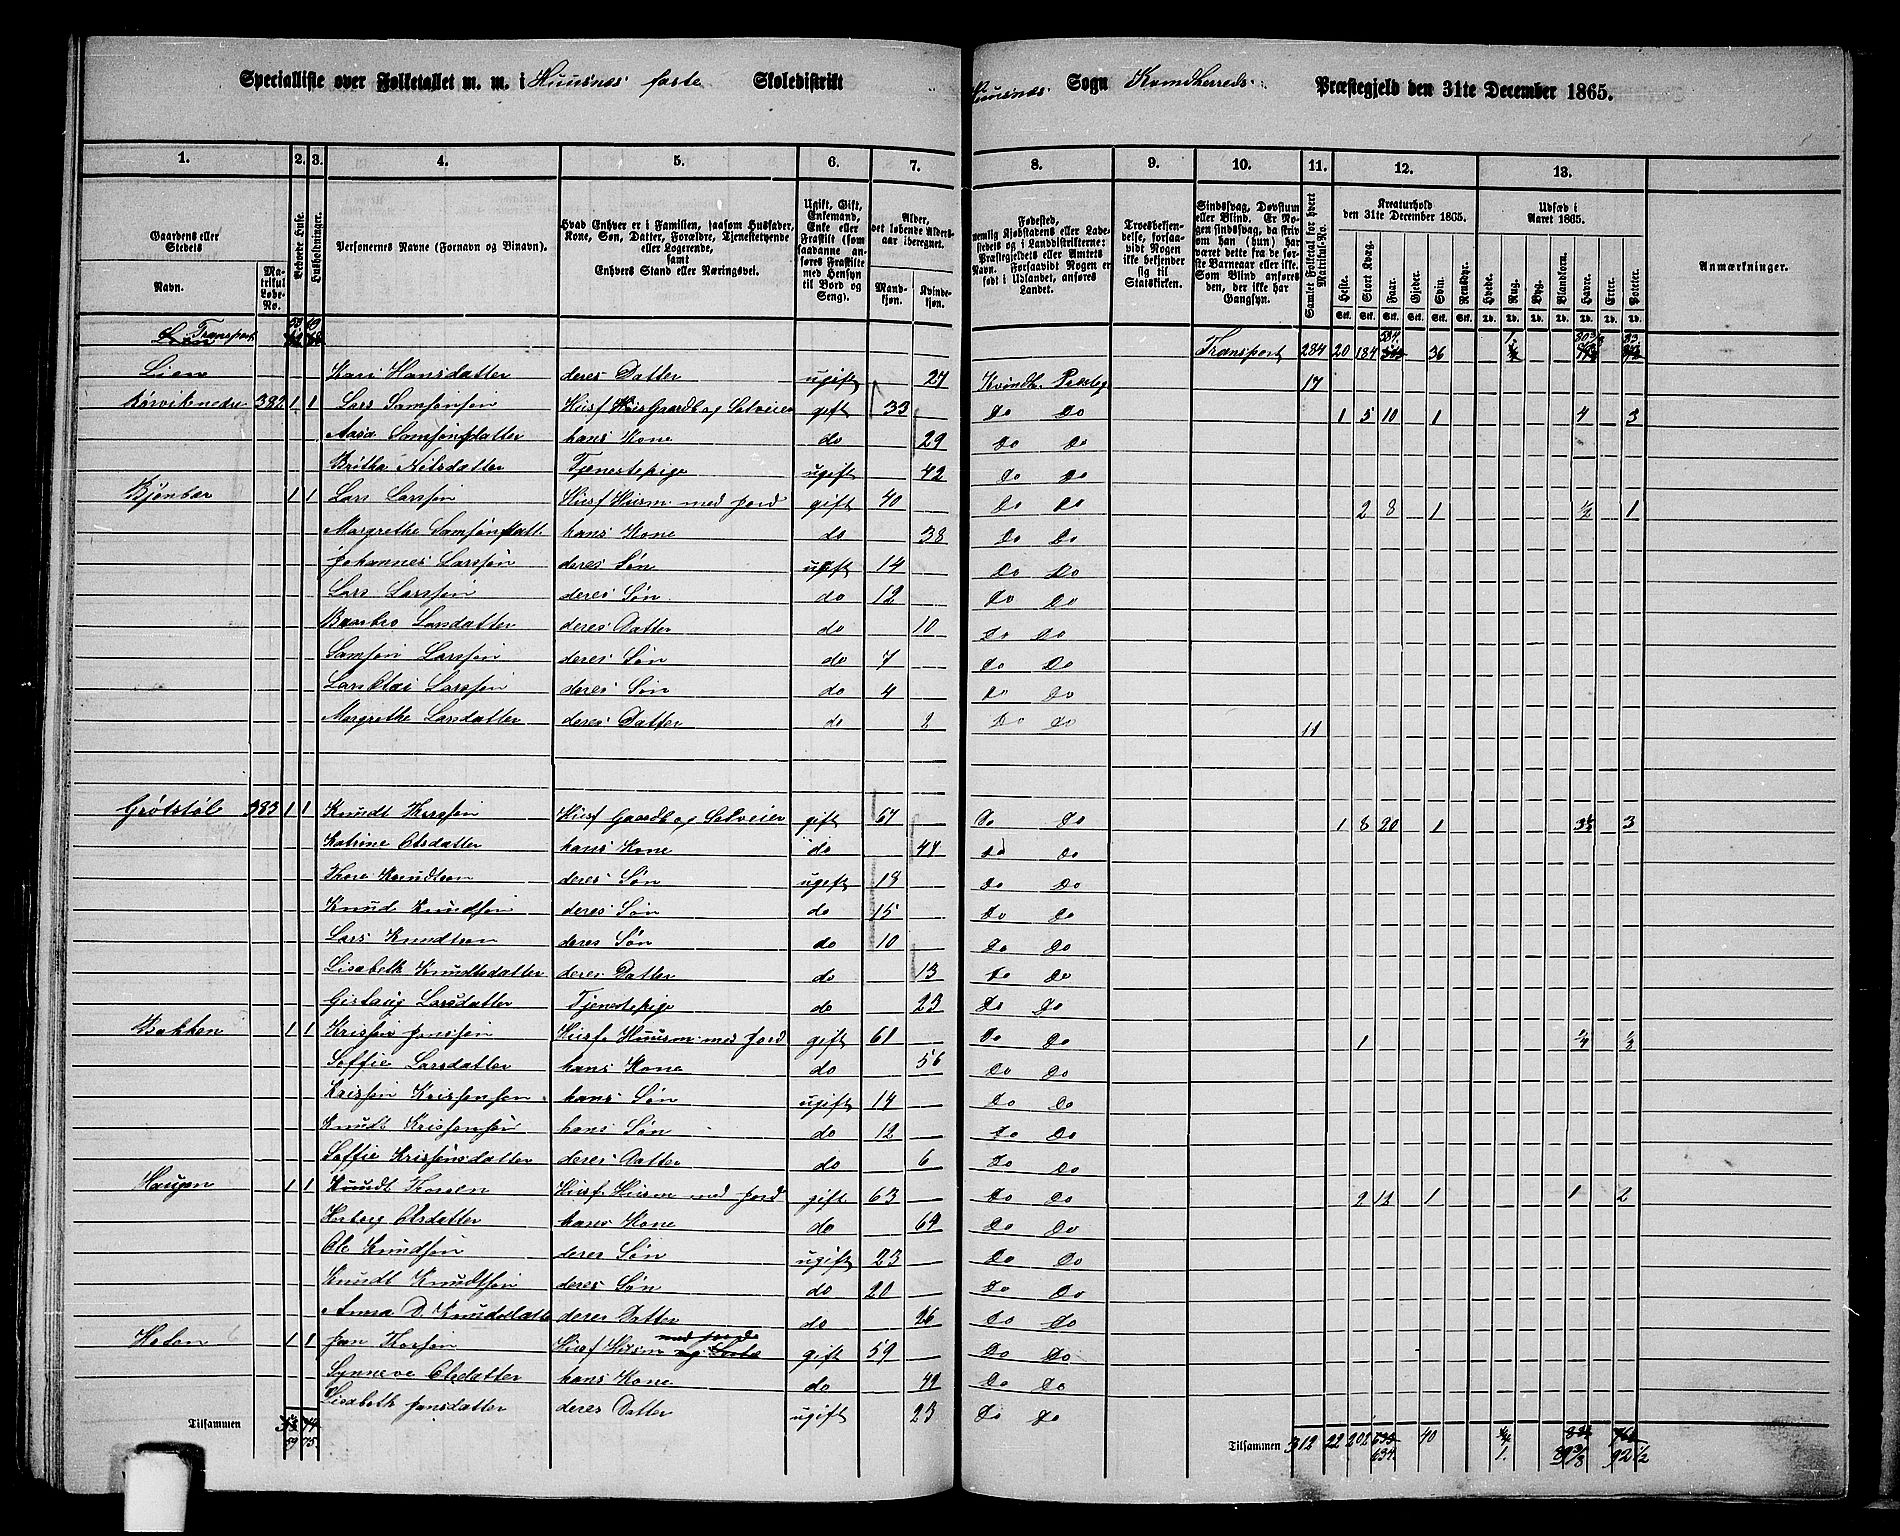 Specialliste over Folketallet m. m. i Huusnes faste Skoledistrikt Huusnes Sogn Kvindherreds Præstegjeld den 31te December 1865.
1. 2. 3. 4. 5. 6. 7. 8. 9. 10. 11. 12. 13.
Gaardens eller Stedets Navn. Matrikul Løbe-No. Beboede Huse. Husholdninger. Personernes Navne (Fornavn og Binavn). Hvad Enhver er i Familien, saasom Husfader, Kone, Søn, Datter, Forældre, Tjenestetyende eller Logerende, samt Enhvers Stand eller Næringsvei. Ugift, Gift, Enkemand, Enke eller Fraskilt (som saadanne anføres Fraskilte med Hensyn til Bord og Seng). Alder, det løbende Aldersaar iberegnet. Mandkjøn. Kvindekjøn. Fødested, nemlig Kjøbstadens eller Ladestedets og i Landdistrikterne: Præstegjeldets eller Amtets Navn. Forsaavidt Nogen er født i Udlandet, anføres Landet. Troesbekjendelse, forsaavidt Nogen ikke bekjender sig til Statskirken. Sindssvag, Døvstum eller Blind. Er Nogen sindssvag, da skrives om han (hun) har været dette fra de første Barneaar eller ikke. Som Blind anføres den, der ikke har Gangsyn. Samlet Folketal for hvert Matrikul-No. Kreaturhold den 31te December 1865. Heste. Stort Kvæg. Faar. Gjeder. Svin. Rensdyr. Udsæd i Aaret 1865. Hvede. Rug. Byg. Blandkorn. Havre. Erter. Poteter. Anmærkninger.
Transport Transport 284 20 184 36
Lien Kari Hansdatter deres Datter ugift 27 Kvindh. Præsteg 17
382 1 1 Lars Samsonsøn Husf Gaardb og Selveier gift 33 Do Do 1 5 10 1 4 3
Aasa Samsonsdatter hans Kone do 29 Do Do
Britha Nilsdatter Tjenestepige ugift 42 Do Do
1 1 Lars Larssøn Husf Husm med Jord gift 40 Do Do 2 8 1 1/2 1
Margrethe Samsonsdatt. hans Kone do 38 Do Do
Johannes Larssøn deres Søn ugift 14 Do Do
Lars Larssøn deres Søn do 12 Do Do
Baarbro Larsdatter deres Datter do 10 Do Do
Samson Larssøn deres Søn do 7 Do Do
Larssøn deres Søn do 4 Do Do
Margrethe Larsdatter deres Datter do 2 Do Do 11
Grøtstøl 383 1 1 Knudt gift 67 Husf Gaardb og Selveier Do Do 1 8 20 1 3
Katrine Olsdatter hans Kone do Do Do
Thore Knudtsen deres Søn ugift 18 Do Do
Knud Knudsøn deres Søn do 15 Do Do
Lars Knudtsen deres Søn do 10 Do Do
Lisabeth Knudtsdatter deres Datter do 13 Do Do
Larsdatter Tjenestepige do 23 Do Do
Bakken 1 1 Jonssøn Husf. Huusm. med Jord gift 61 Do Do 1
Soffie Larsdatter hans Kone do 56 Do Do
hans Søn ugift 14 Do Do
Knudt hans Søn do 12 Do Do
Soffie deres Datter do 6 Do Do
Haugen 1 1 Knudt Thorsen Husf Husm med Jord gift 63 Do Do 2 1 1 2
Olsdatter hans Kone do 69 Do Do
Ole Knudsøn deres Søn ugift 23 Do Do
Knudt Knudtsøn deres Søn do 20 Do Do
Anna D. Knudsdatte deres Datter do 26 Do Do
1 1 Jan Husf Husm med Jord gift 59 Do Do
Synneve Olsdatter hans Kone do 49 Do Do
Lisabeth Jansdatter deres Datter ugift 23 Do Do
Tilsammen 59 75. Tilsammen 312 22 202 634. 40 1. 92 1/2